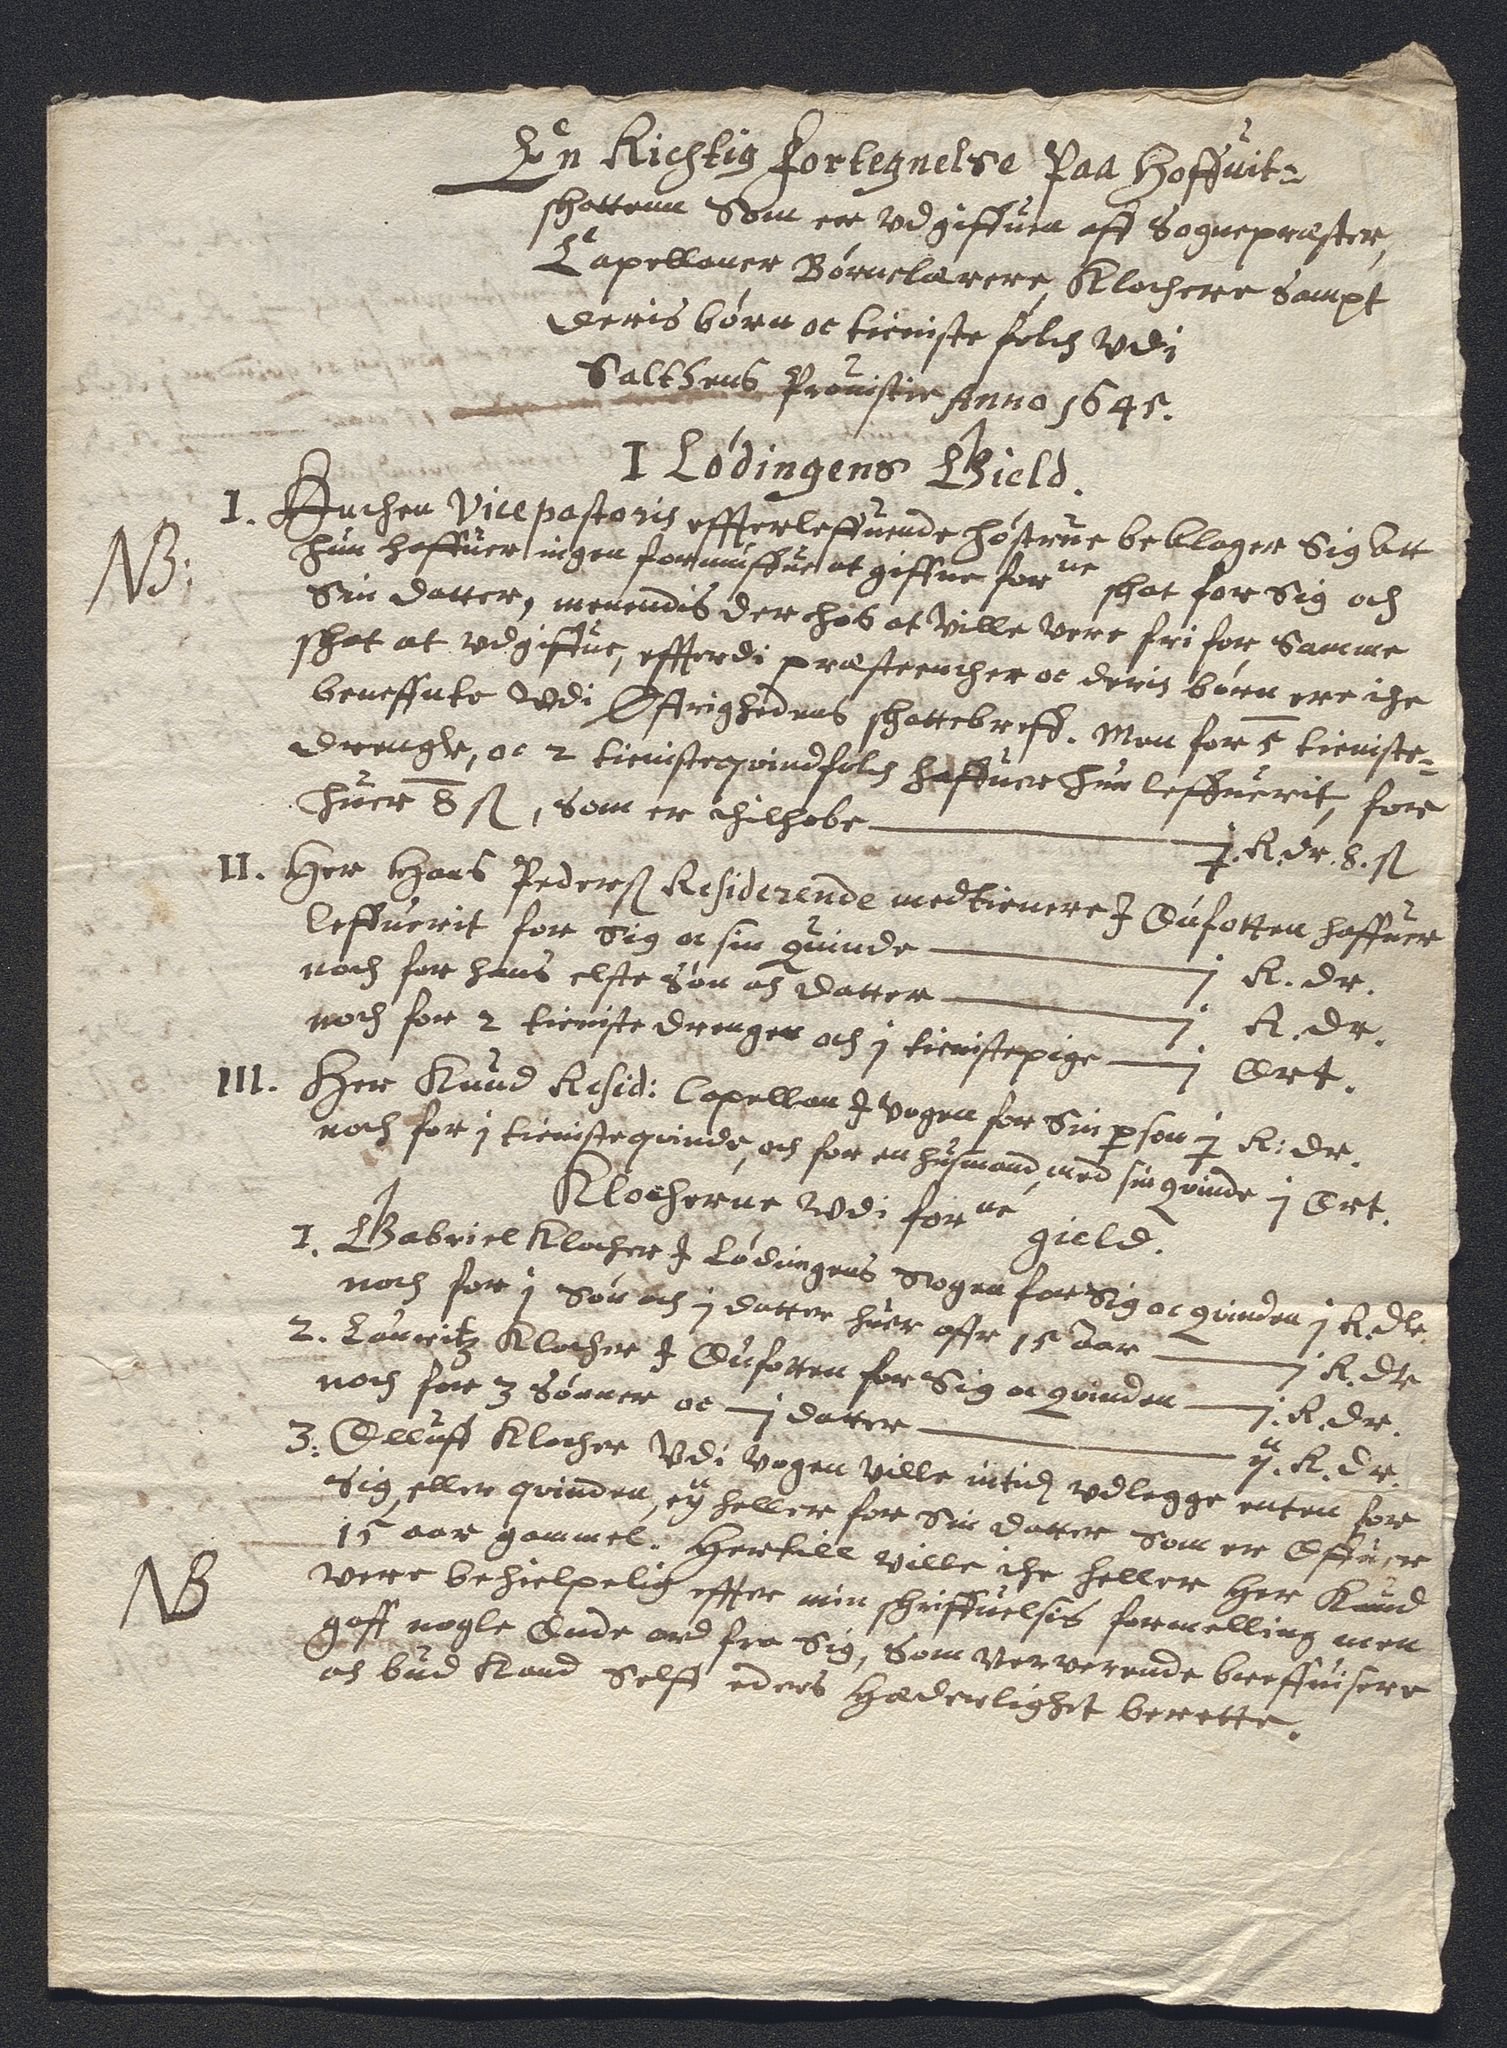 En Richtig Fortegnelse Paa Hoffuit-
skatten Som er udgiffuen aff Sognepræster,
Capellaner, Børnelærere, Klochere Sampt
deris børn oc tieniste folch udi
Salthens Prouistie Anno 1645.
I Lødingens Gield.
I. Enchen Vicepastoris effterleffuende høstrue beklager Sig att
NB: hun haffuer ingen formuffue at giffue forne skat for Sig och
Sin datter, menendis der hos at ville vere fri for Samme
skat at udgiffue, effterdi præsteencher oc deris børn ere iche
beneffnte udi Øffrighedens skattebreff. Men for 5 tieniste-
drenge, oc 2 tienisteqvindfolch haffuer hun leffuerit, for
huer 8 ß, Som er tilhobe — j. R.dr. 8. ß
II. Her Hans Pederß Residerende medtienere I Oufotten haffuer
leffuerit for Sig oc sin Quinde — j R. dr.
noch for hans elste Søn och datter — j R. dr.
noch for 2 tieniste drenger och j tienistepige — j Ort.
III. Her Knud Resid: Capellan I Vogen for Sin person j R: dr.
noch for j tienisteqvinde, och for en husmand med sin qvinde j Ort.
Klocherne udi forne gield.
1. Gabriel Klocher I Lødingens Sogen for Sig oc qvinden j R.dlr
noch for j Søn och j datter huer offr 15 aar — j R. dlr
2. Lauritz Klocher I Oufoten for Sig oc qvinden — j. R. dr.
noch for 3 Sønner oc j datter — ij. R. dr.
3. Olluff Klocher udi Vogen ville intid udlegge enten for
Sig eller qvinden, eÿ heller for Sin datter Som er Offuer
15 aar gammel. Hertill ville iche heller Her Knud
NB vere behielpelig effter min skriffuelsis formelling men
gaff nogle Onde ord fra Sig, Som ververende breffuisere
och bud Kand Selff eders Hæderlighet berette.